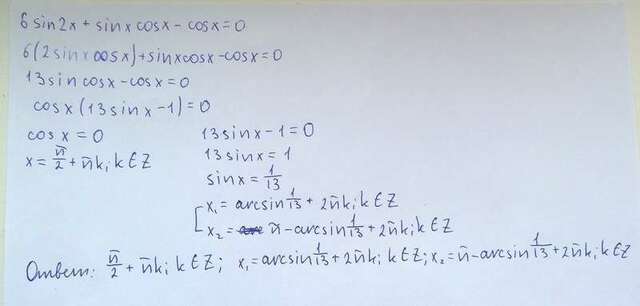 6 sin2x + sinx cosx - cosx = 0
6(2sinx cosx) + sinxcosx - cosx = 0
13sin cosx - cosx = 0
cosx (13sinx - 1) = 0
cos x = 0 13sinx - 1 = 0
x = π/2 + πk; k∈Z 13sinx = 1
sinx = 1/13
[ x₁ = arcsin 1/13 + 2πk; k∈Z
x₂ = π - arcsin 1/13 + 2πk; k∈Z
Ответ: π/2 + πk; k∈Z; x₁ = arcsin 1/13 + 2πk; k∈Z; x₂ = π - arcsin 1/13 + 2πk; k∈Z